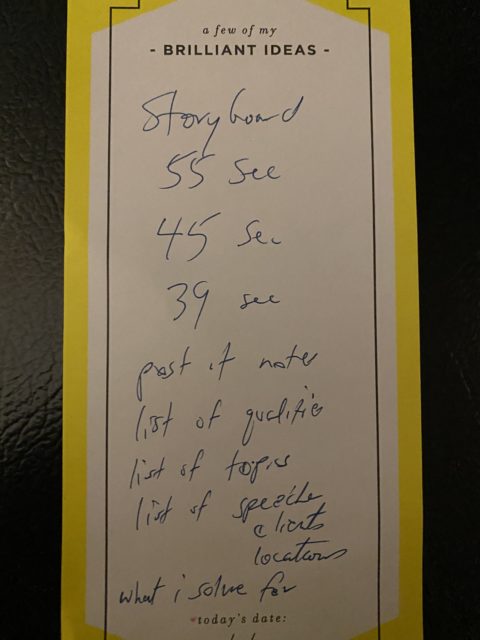 a few of my
- BRILLIANT IDEAS -
Storyboard
55 Sec
45 Sec
39 sec
post it notes
list of qualities
list of topics
list of speeches
clients
locations
what i solve for
today's date: